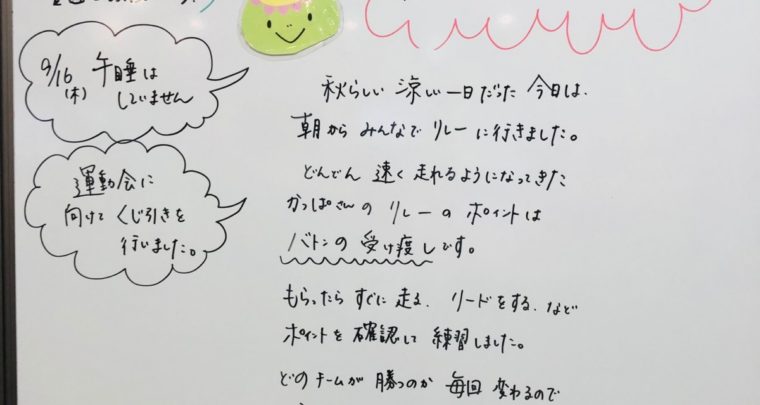 9/16
(木)
午睡は
していません
運動会に
向けてくじ引きを
行いました。
秋らしい 涼しい一日だった 今日は、
朝から みんなで リレーに行きました。
どんどん 速く走れるようになってきた
かっぱさんの リレーの ポイントは
バトンの 受け渡しです。
もらったら すぐに走る、リードをする、など
ポイントを 確認して 練習しました。
どのチームが 勝つのか 毎回 変わるので